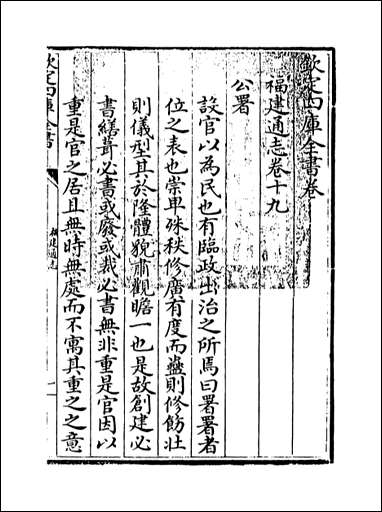 欽定四庫全書卷
福建通志卷十九
公署
設官以為民也有臨政出治之所焉曰署署者
位之表也崇卑殊秩修廣有度而蠱則修飭壯
則儀型其於隆體貌肅觀瞻一也是故創建必
書繕葺必書或廢或裁必書無非重是官因以
重是官之居且無時無處而不寓其重之之意
欽定四庫全書
福建通志
一